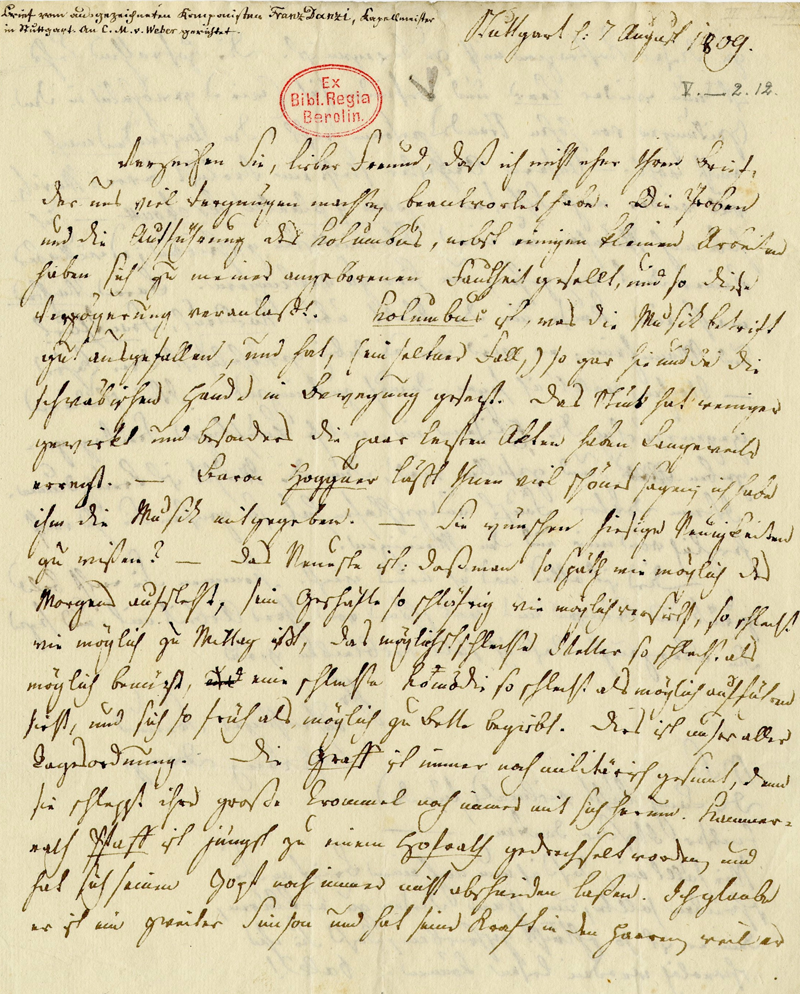 Brief vom ausgezeichneten Komponisten Franz Danzi, Kapellmeister
in Stuttgart. An C. M. v. Weber gerichtet.
Stuttgart d: 7 August 1809.
V. — 2. 12.
Ex
Bibl. Regia
Berolin.
Verzeihen Sie, lieber Freund, daß ich nicht eher Ihren Brief,
der uns viel Vergnügen machte, beantwortet habe. Die Proben
und die Aufführung des Kolumbus, nebst einigen kleinen Arbeiten
haben sich zu meiner angeborenen Faulheit gesellt, und so diese
Verzögerung veranlaßt. Kolumbus ist, was die Musik betrift
gut ausgefallen, und hat, (ein seltner Fall,) so gar hie und da die
schwäbischen Hände in Bewegung gesezt. Das Stük hat weniger
gewirkt und besonders die paar lezten Akten haben Langeweile
erregt. — Baron Hoggner läßt Ihnen viel schönes sagen; ich habe
ihm die Musik mitgegeben. — Sie wünschen hiesige Neuigkeiten
zu wißen? — Das Neueste ist: daß man so späth wie möglich des
Morgens aufsteht, sein Geschäfte so schläfrig wie möglich versieht, so schlecht
wie möglich zu Mittag ißt, das möglichst schlechte Wetter so schlecht als
möglich benüzt, eine schlechte Komödie so schlecht als möglich aufführen
sieht, und sich so früh als möglich zu Bette begiebt. Dies ist unser aller
Tagesordnung. Die Graff ist immer noch militärisch gesinnt, denn
sie schleppt ihre große Trommel noch immer mit sich herum. Kammer=
rath Pfaff ist jüngst zu einem Hofrath gedrechselt worden, und
hat sich seinen Zopf noch immer nicht abschneiden laßen. Ich glaube
er ist ein zweiter Simson und hat seine Kraft in den Haaren, weil er